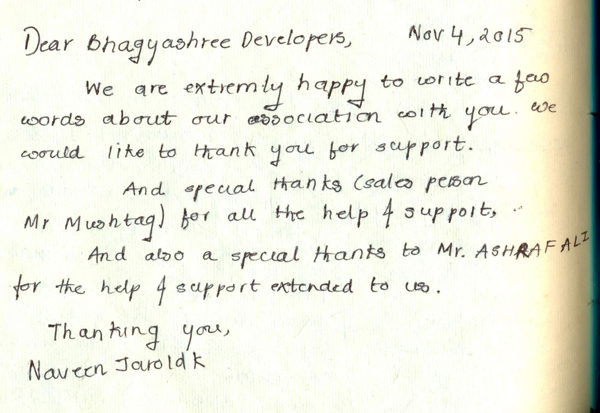 Dear Bhagyashree Developers, Nov 4, 2015
We are extremly happy to write a few
words about our association with you. we
would like to thank you for support.
And special thanks (sales person
Mr Mushtaq) for all the help & support,
And also a special thanks to Mr. ASHRAF ALI
for the help & support extended to us.
Thanking you,
Naveen Jarold K